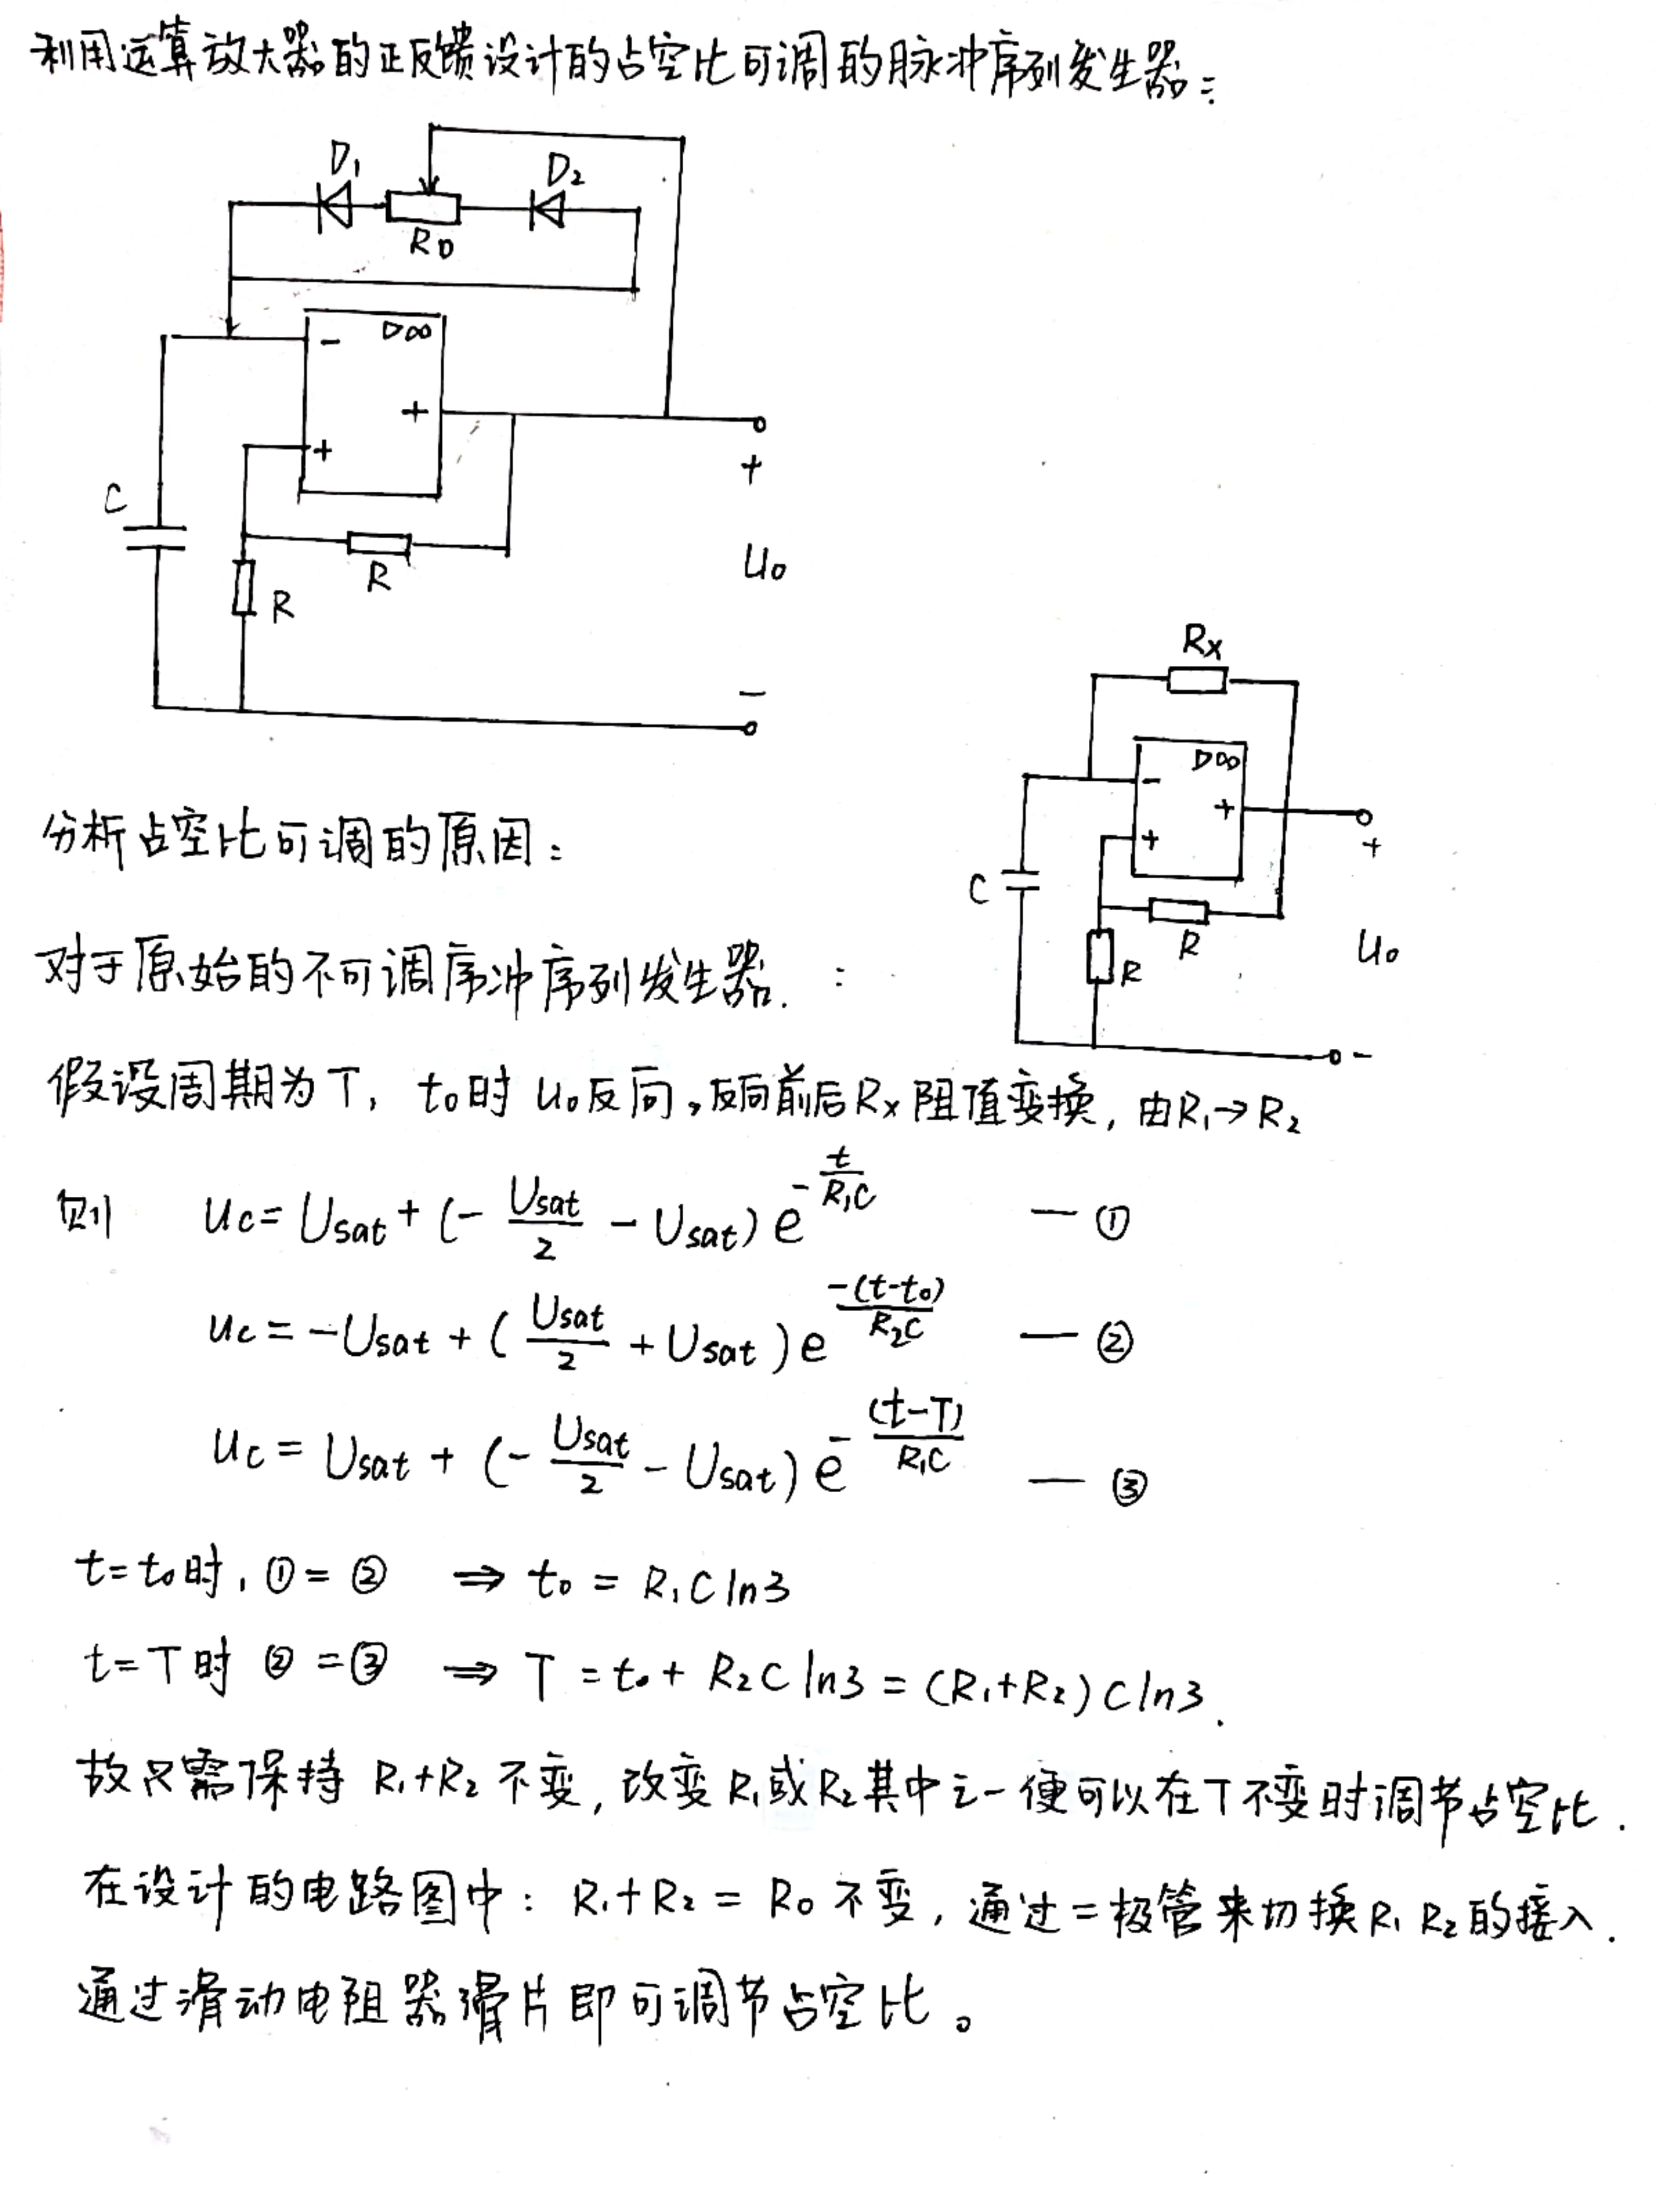 利用运算放大器的正反馈设计的占空比可调的脉冲序列发生器:
D₁
D₂
R₀
▷∞
-
+
+
C
R
R
+
u₀
-
Rx
▷∞
-
+
+
C
R
R
+
u₀
-
分析占空比可调的原因:
对于原始的不可调序冲序列发生器. :
假设周期为T, t₀时 u₀反向,反向前后Rx阻值变换, 由R₁→R₂
则 uc = Usat + (- Usat/2 - Usat) e^(-t/(R₁C)) — ①
uc = -Usat + (Usat/2 + Usat) e^(-(t-t₀)/(R₂C)) — ②
uc = Usat + (- Usat/2 - Usat) e^(-(t-T)/(R₁C)) — ③
t=t₀时, ①=② ⇒ t₀ = R₁C ln3
t=T时 ②=③ ⇒ T = t₀ + R₂C ln3 = (R₁+R₂)C ln3.
故只需保持 R₁+R₂ 不变, 改变R₁或R₂其中之一便可以在T不变时调节占空比.
在设计的电路图中: R₁+R₂ = R₀ 不变, 通过二极管来切换R₁ R₂的接入.
通过滑动电阻器滑片即可调节占空比。